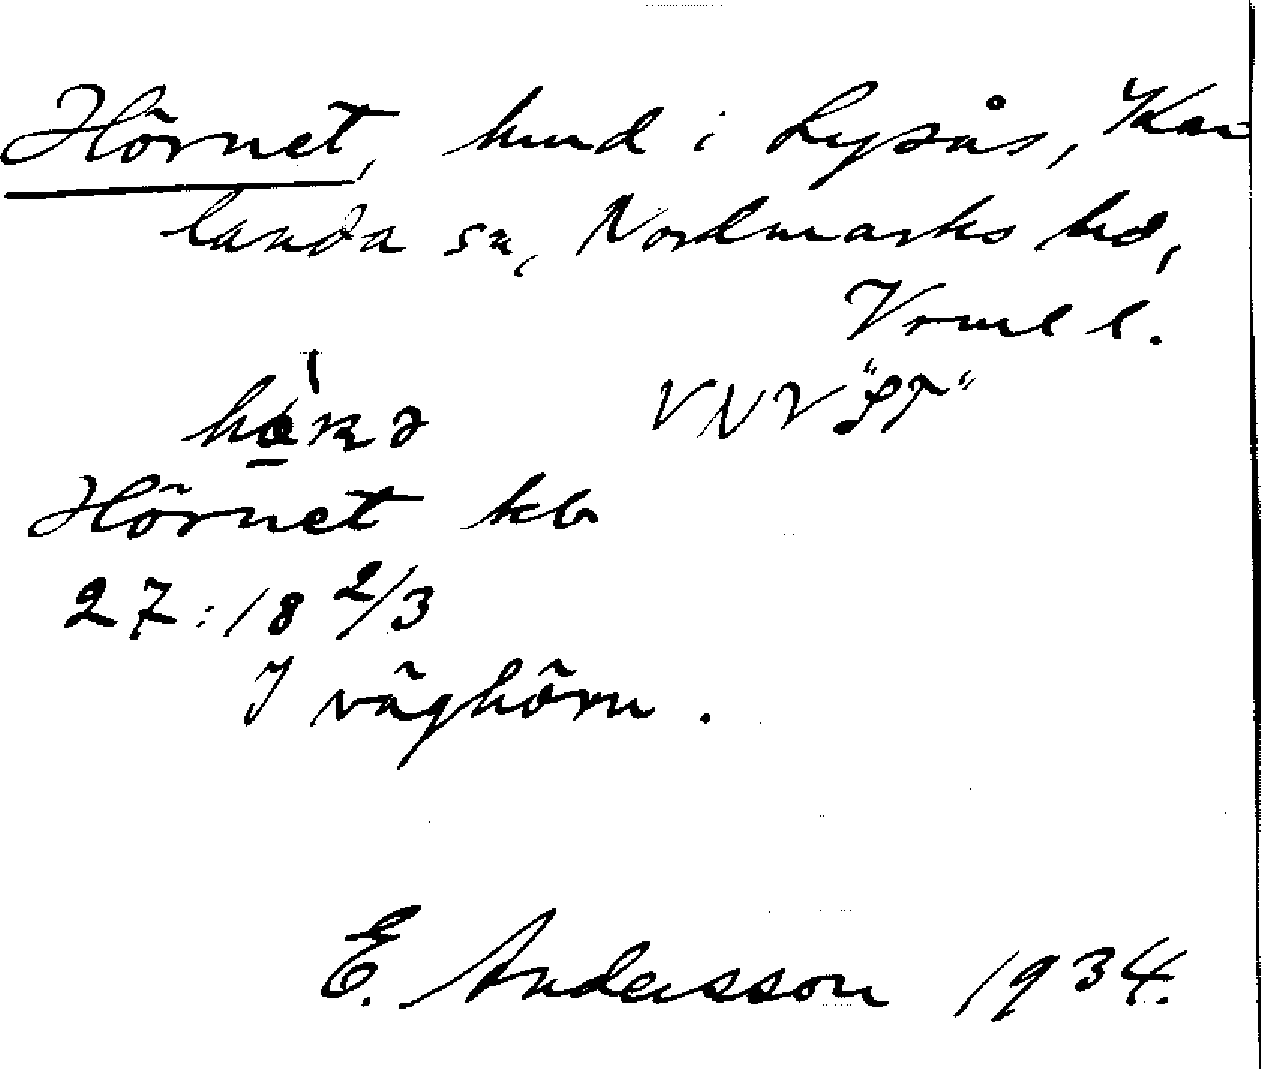 Hörnet, hmd i Lysås, Kar-
landa sn, Nordmarks hd,
Vrml l.
Hörnet kb
27:18 2/3
I väghörn.
E. Andersson 1934.